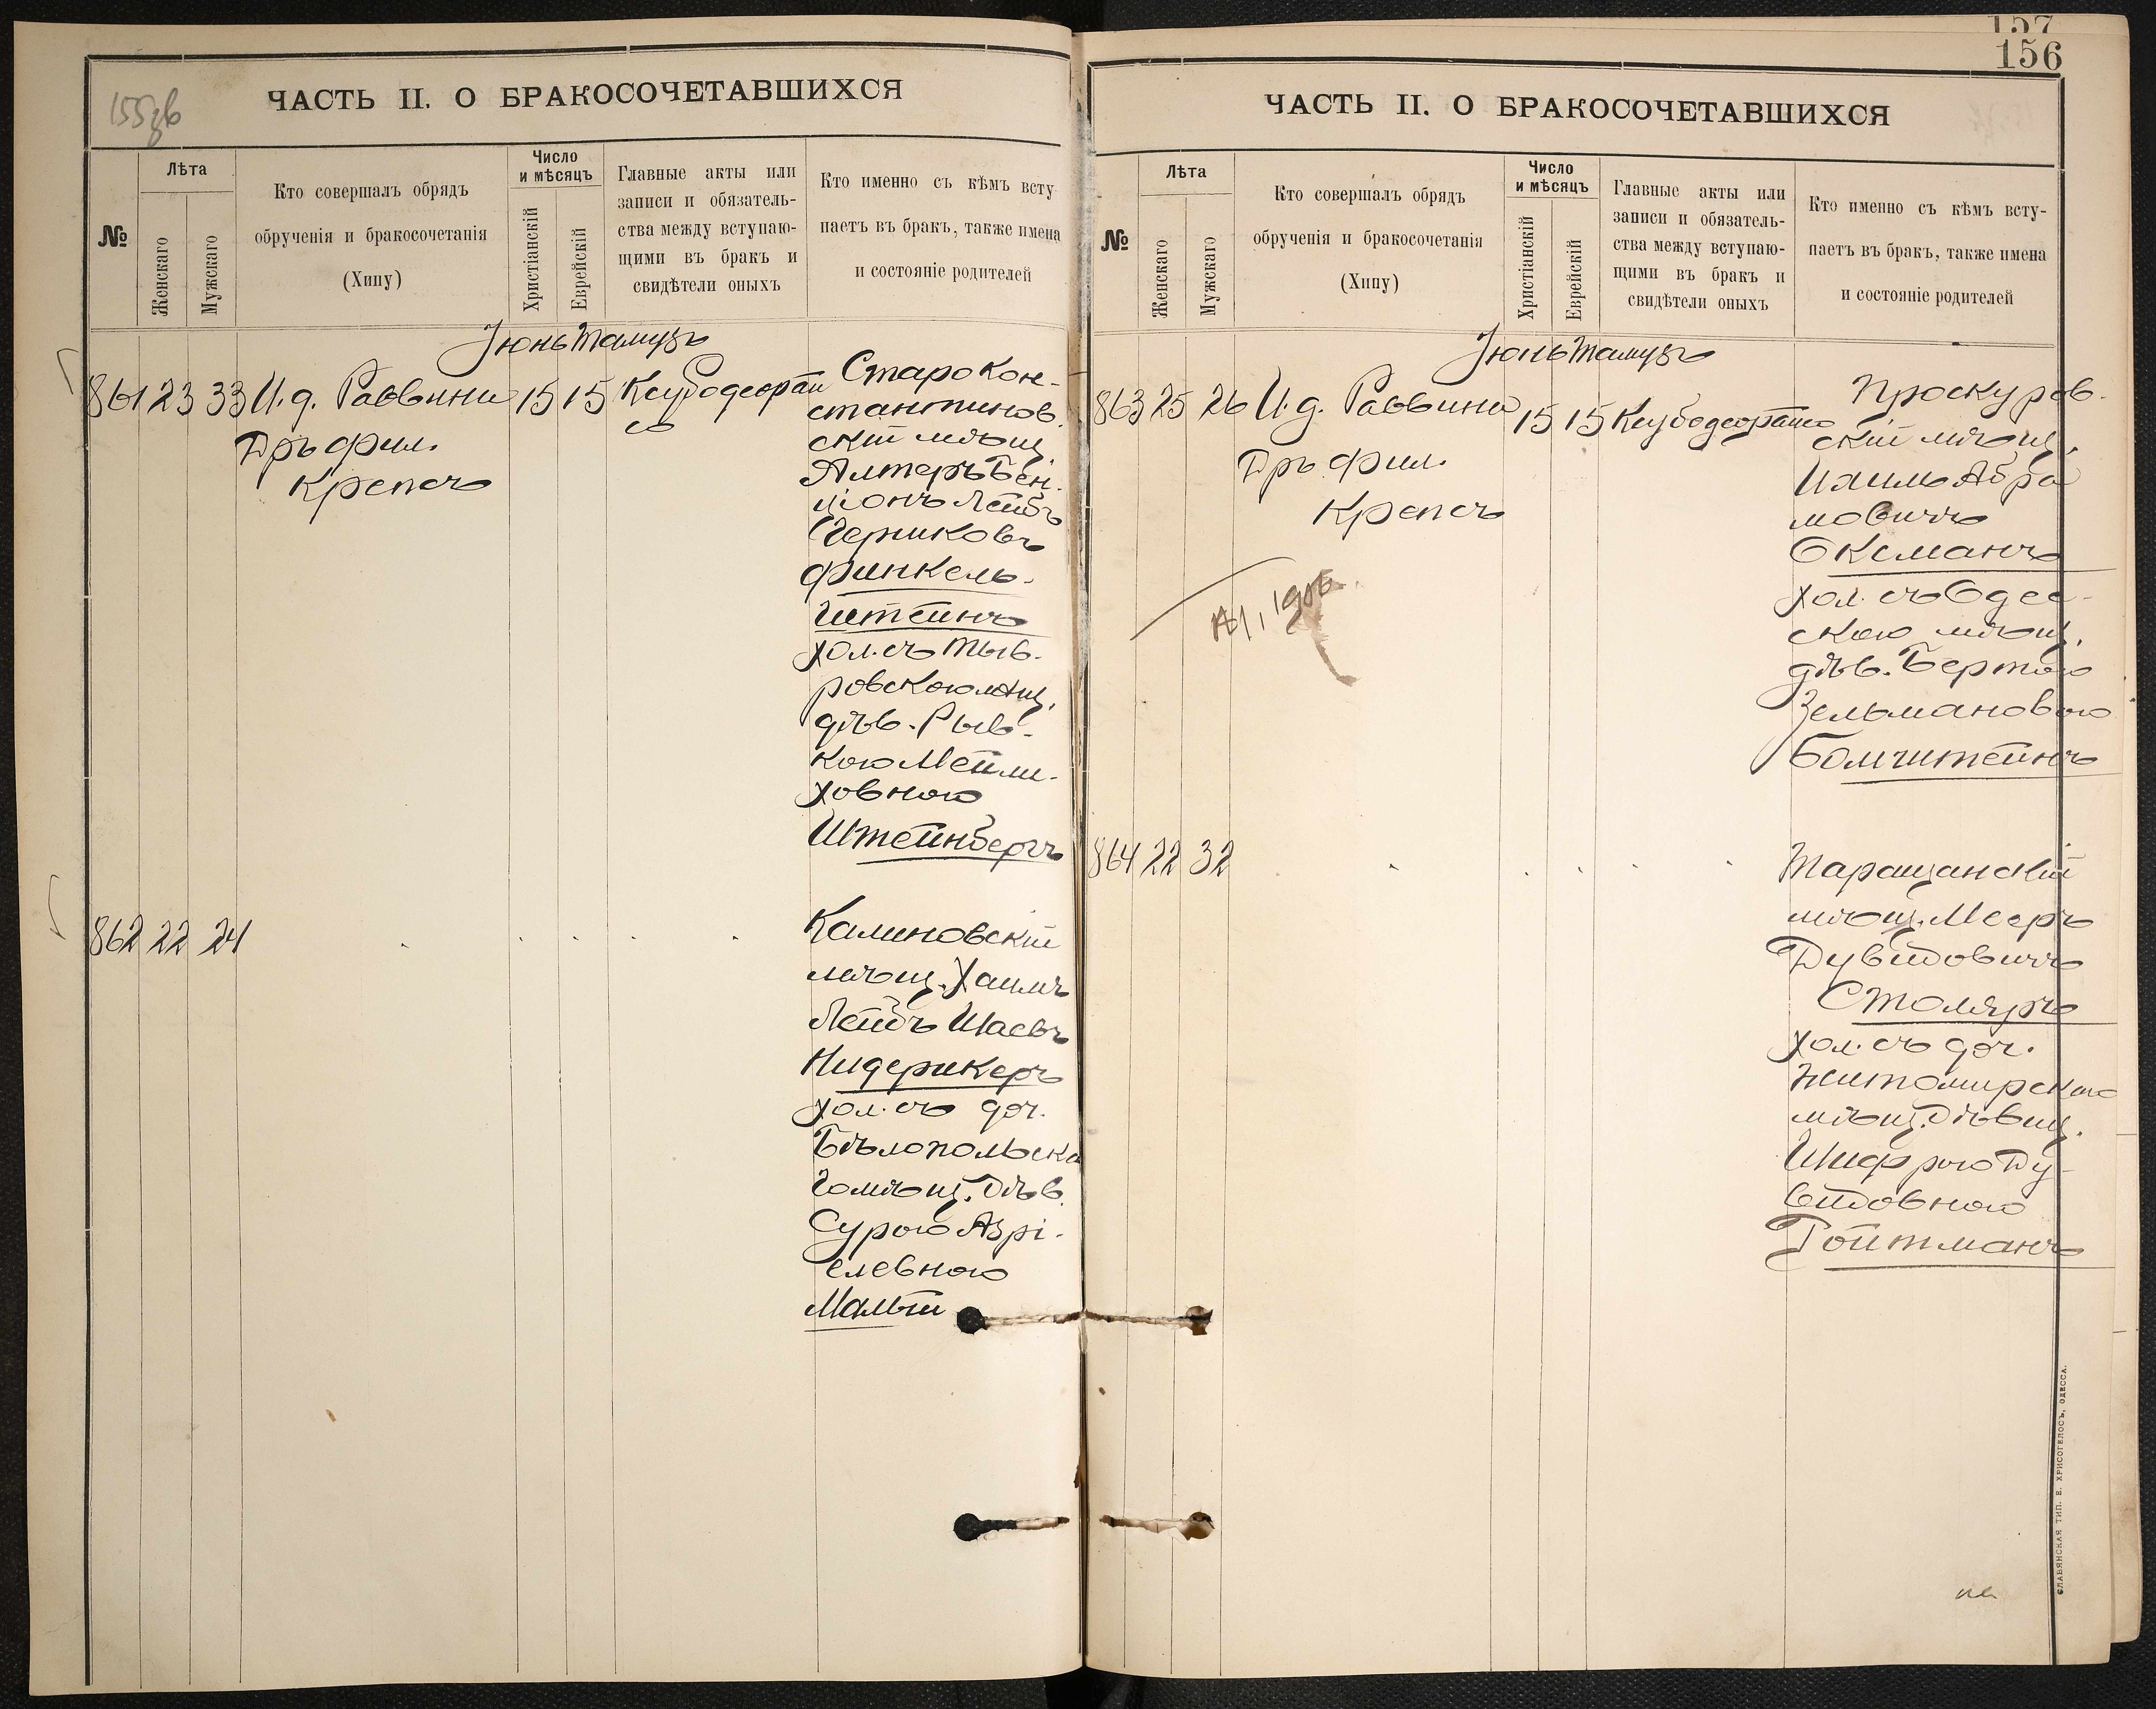 155зв
ЧАСТЬ II. О БРАКОСОЧЕТАВШИХСЯ
№
Лѣта
Женскаго
Мужскаго
Кто совершалъ обрядъ
обрученія и бракосочетанія
(Хипу)
Число
и мѣсяцъ
Христіанскій
Еврейскій
Главные акты или
записи и обязатель-
ства между вступаю-
щими въ бракъ и
свидѣтели оныхъ
Кто именно съ кѣмъ всту-
паетъ въ бракъ, также имена
и состояніе родителей
Іюнь Тамузъ
861 23 33 И. д. Раввина 15 15
Дръ фил.
Крепсъ
Старокон-
стантинов.
скій мѣщ.
Алтеръ Бен.
ціонъ Лейбъ
Чериковъ
Финкель-
штейнъ
хол. съ Тыв-
ровскою мѣщ.
дѣв. Рыв-
кою Мейли-
ховною
Штейнбергъ
862 22 24
Калиновскій
мѣщ. Хаимъ
Лейбъ Шаевъ
Нидерикеръ
хол. съ доч.
Бѣлопольска
го мѣщ. дѣв.
Сурою Азрі-
елевною
Малый
157
156
ЧАСТЬ II. О БРАКОСОЧЕТАВШИХСЯ
№
Лѣта
Женскаго
Мужскаго
Кто совершалъ обрядъ
обрученія и бракосочетанія
(Хипу)
Число
и мѣсяцъ
Христіанскій
Еврейскій
Главные акты или
записи и обязатель-
ства между вступаю-
щими въ бракъ и
свидѣтели оныхъ
Кто именно съ кѣмъ всту-
паетъ въ бракъ, также имена
и состояніе родителей
Іюнь Тамузъ
863 25 26 И. д. Раввина 15 15
Дръ фил.
Крепсъ
Проскуров-
скій мѣщ.
Абра
мовичъ
Оксманъ
хол. съ Одес-
скою мѣщ.
дѣв. Бертою
Зельмановою
Бомштейнъ
864 22 32
Таращанскій
мѣщ. Мееръ
Дувидовичъ
Столяръ
хол. съ доч.
Житомирскаго
мѣщ. дѣвиц.
Шифрою Ду-
видовною
Ройтманъ
СЛАВЯНСКАЯ ТИП. Е. ХРИСОГЕЛОСЪ, ОДЕССА.